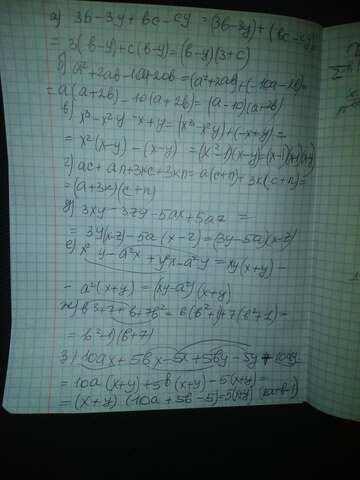 а) 3b - 3y + bc - cy = (3b - 3y) + (bc - cy)
= 3(b-y) + c(b-y) = (b-y)(3+c)
б) a² + 2ab - 10a - 20b = (a² + 2ab) + (-10a - 20b) =
= a(a+2b) - 10(a+2b) = (a-10)(a+2b)
в) x³ - x²y - x + y = (x³ - x²y) + (-x+y) =
= x²(x-y) - (x-y) = (x²-1)(x-y) = (x-1)(x+1)(x-y)
г) ac + an + 3xc + 3xn = a(c+n) + 3x(c+n) =
= (a+3x)(c+n)
д) 3xy - 3zy - 5ax + 5az =
= 3y(x-z) - 5a(x-z) = (3y-5a)(x-z)
е) x²y - a²x + y²x - a²y = xy(x+y) -
- a²(x+y) = (xy-a²)(x+y)
ж) b³ + 7 + b + 7b² = b(b²+1) + 7(b²+1) =
= b²+1)(b+7)
з) 10ax + 5bx - 5x + 5by - 5y + 10ay
= 10a(x+y) + 5b(x+y) - 5(x+y) =
= (x+y) (10a + 5b - 5) = 5(x+y) (2a+b-1)